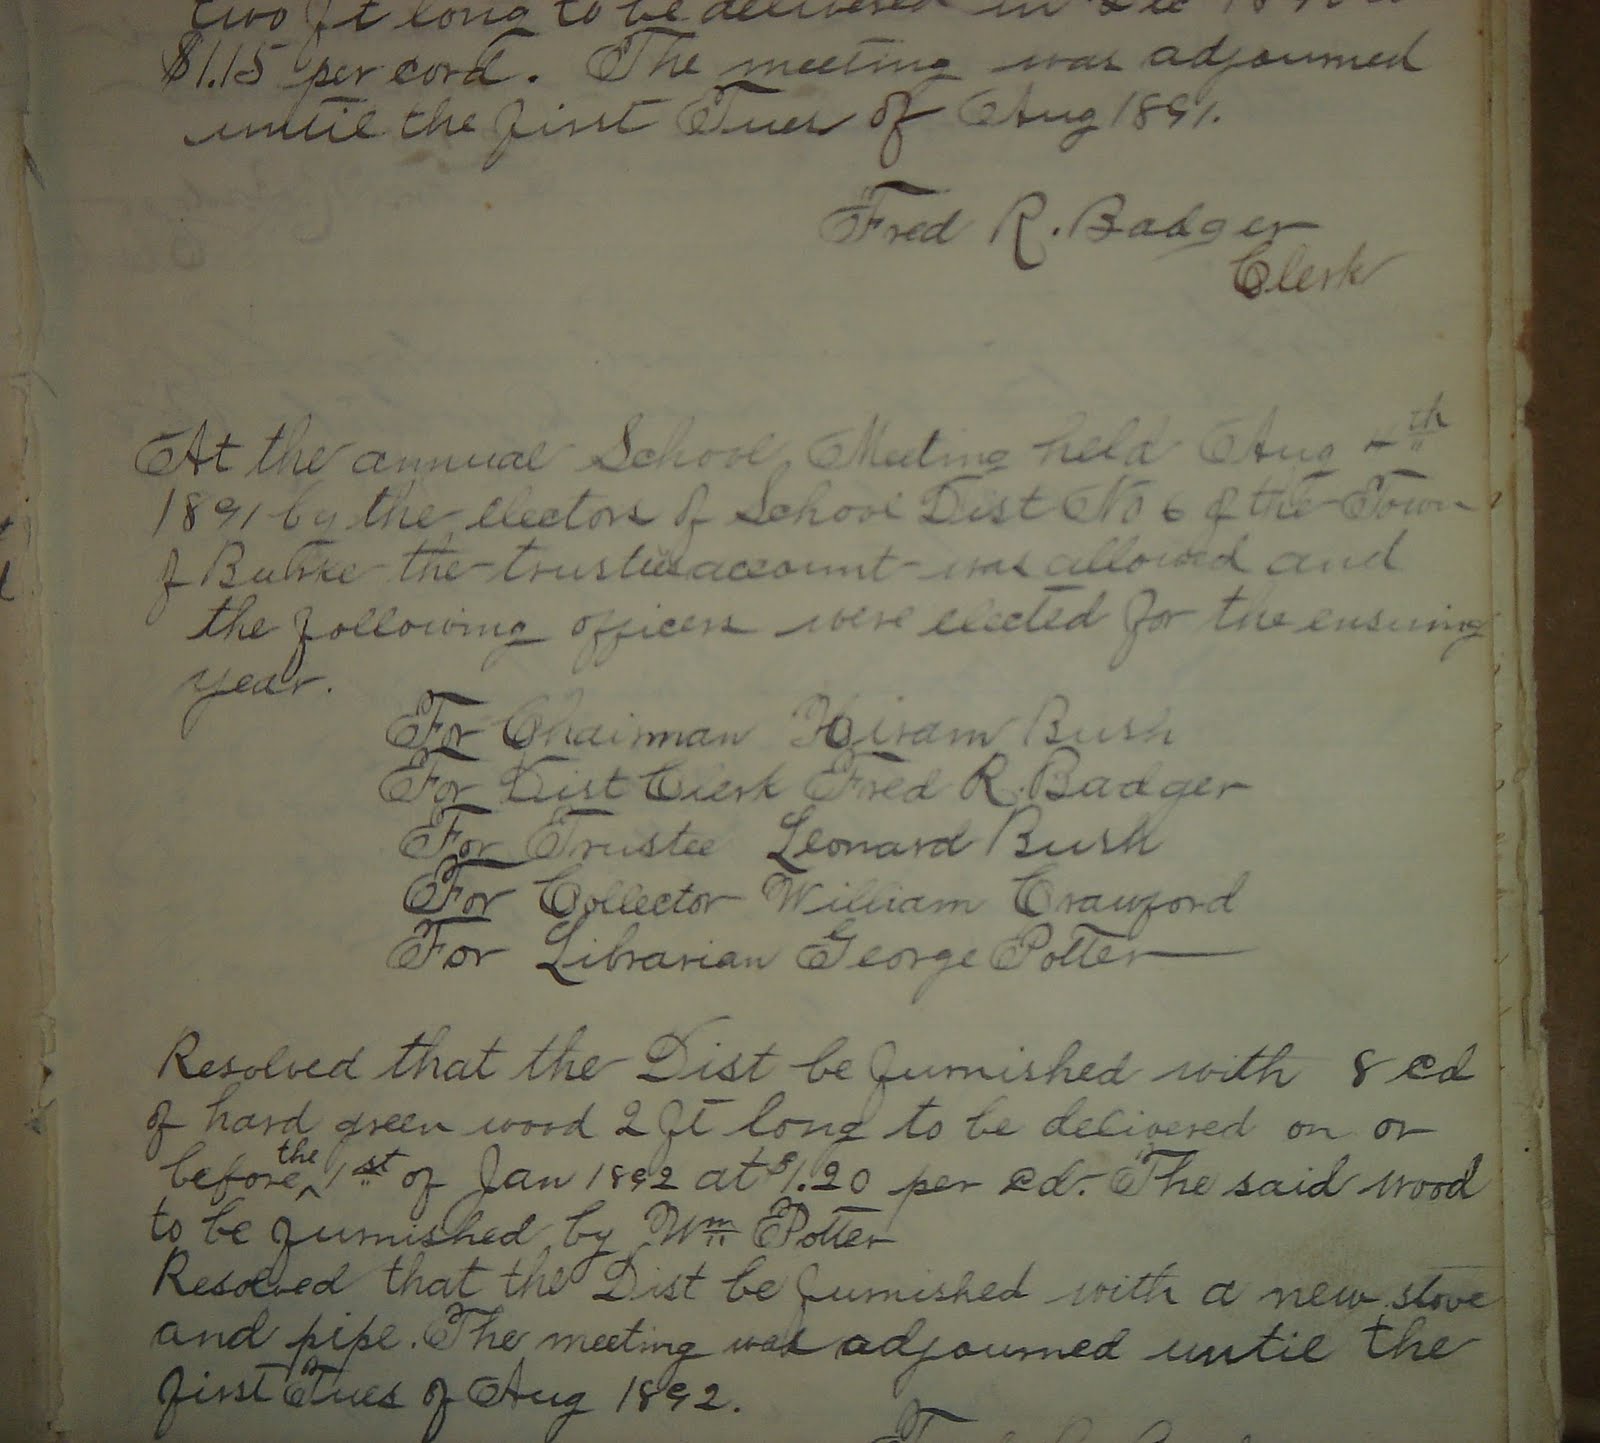 two ft long to be delivered in Dec
$1.15 per cord. The meeting was adjourned
until the first Tues of Aug 1891.
Fred R. Badger
Clerk
At the annual School Meeting held Aug 4th
1891 by the electors of School Dist No 6 of the Town
of Burke the trustees account was allowed and
the following officers were elected for the ensuing
year.
For Chairman Hiram Bush
For Dist Clerk Fred R. Badger
For Trustee Leonard Bush
For Collector William Crawford
For Librarian George Potter
Resolved that the Dist be furnished with 8 cd
of hard green wood 2 ft long to be delivered on or
before the 1st of Jan 1892 at $1.20 per cd. The said wood
to be furnished by Wm Potter
Resolved that the Dist be furnished with a new stove
and pipe. The meeting was adjourned until the
first Tues of Aug 1892.